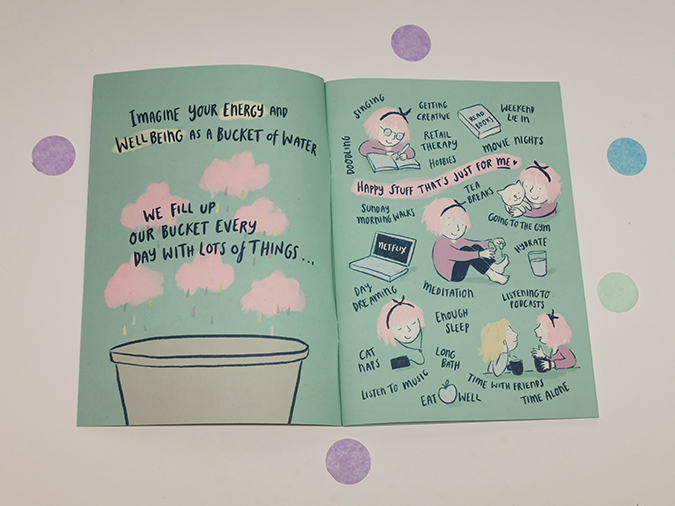 IMAGINE YOUR ENERGY AND
WELLBEING AS A BUCKET OF WATER
WE FILL UP
OUR BUCKET EVERY
DAY WITH LOTS OF THINGS...
SINGING
DOODLING
GETTING
CREATIVE
RETAIL
THERAPY
HOBBIES
READ
BOOKS
WEEKEND
LIE IN
MOVIE NIGHTS
HAPPY STUFF THAT'S JUST FOR ME
SUNDAY
MORNING WALKS
TEA
BREAKS
GOING TO THE GYM
NETFLIX
HYDRATE
DAY
DREAMING
MEDITATION
LISTENING TO
PODCASTS
ENOUGH
SLEEP
CAT
NAPS
LONG
BATH
LISTEN TO MUSIC
EAT WELL
TIME WITH FRIENDS
TIME ALONE